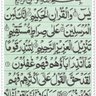 يٰسٓ وَالْقُرْاٰنِ الْحَكِيْمِ اِنَّكَ لَمِنَ
الْمُرْسَلِيْنَ عَلٰى صِرَاطٍ مُّسْتَقِيْمٍ
تَنْزِيْلَ الْعَزِيْزِ الرَّحِيْمِ لِتُنْذِرَ قَوْمًا
مَّآ اُنْذِرَ اٰبَآؤُهُمْ فَهُمْ غٰفِلُوْنَ
لَقَدْ حَقَّ الْقَوْلُ عَلٰٓى اَكْثَرِهِمْ فَهُمْ